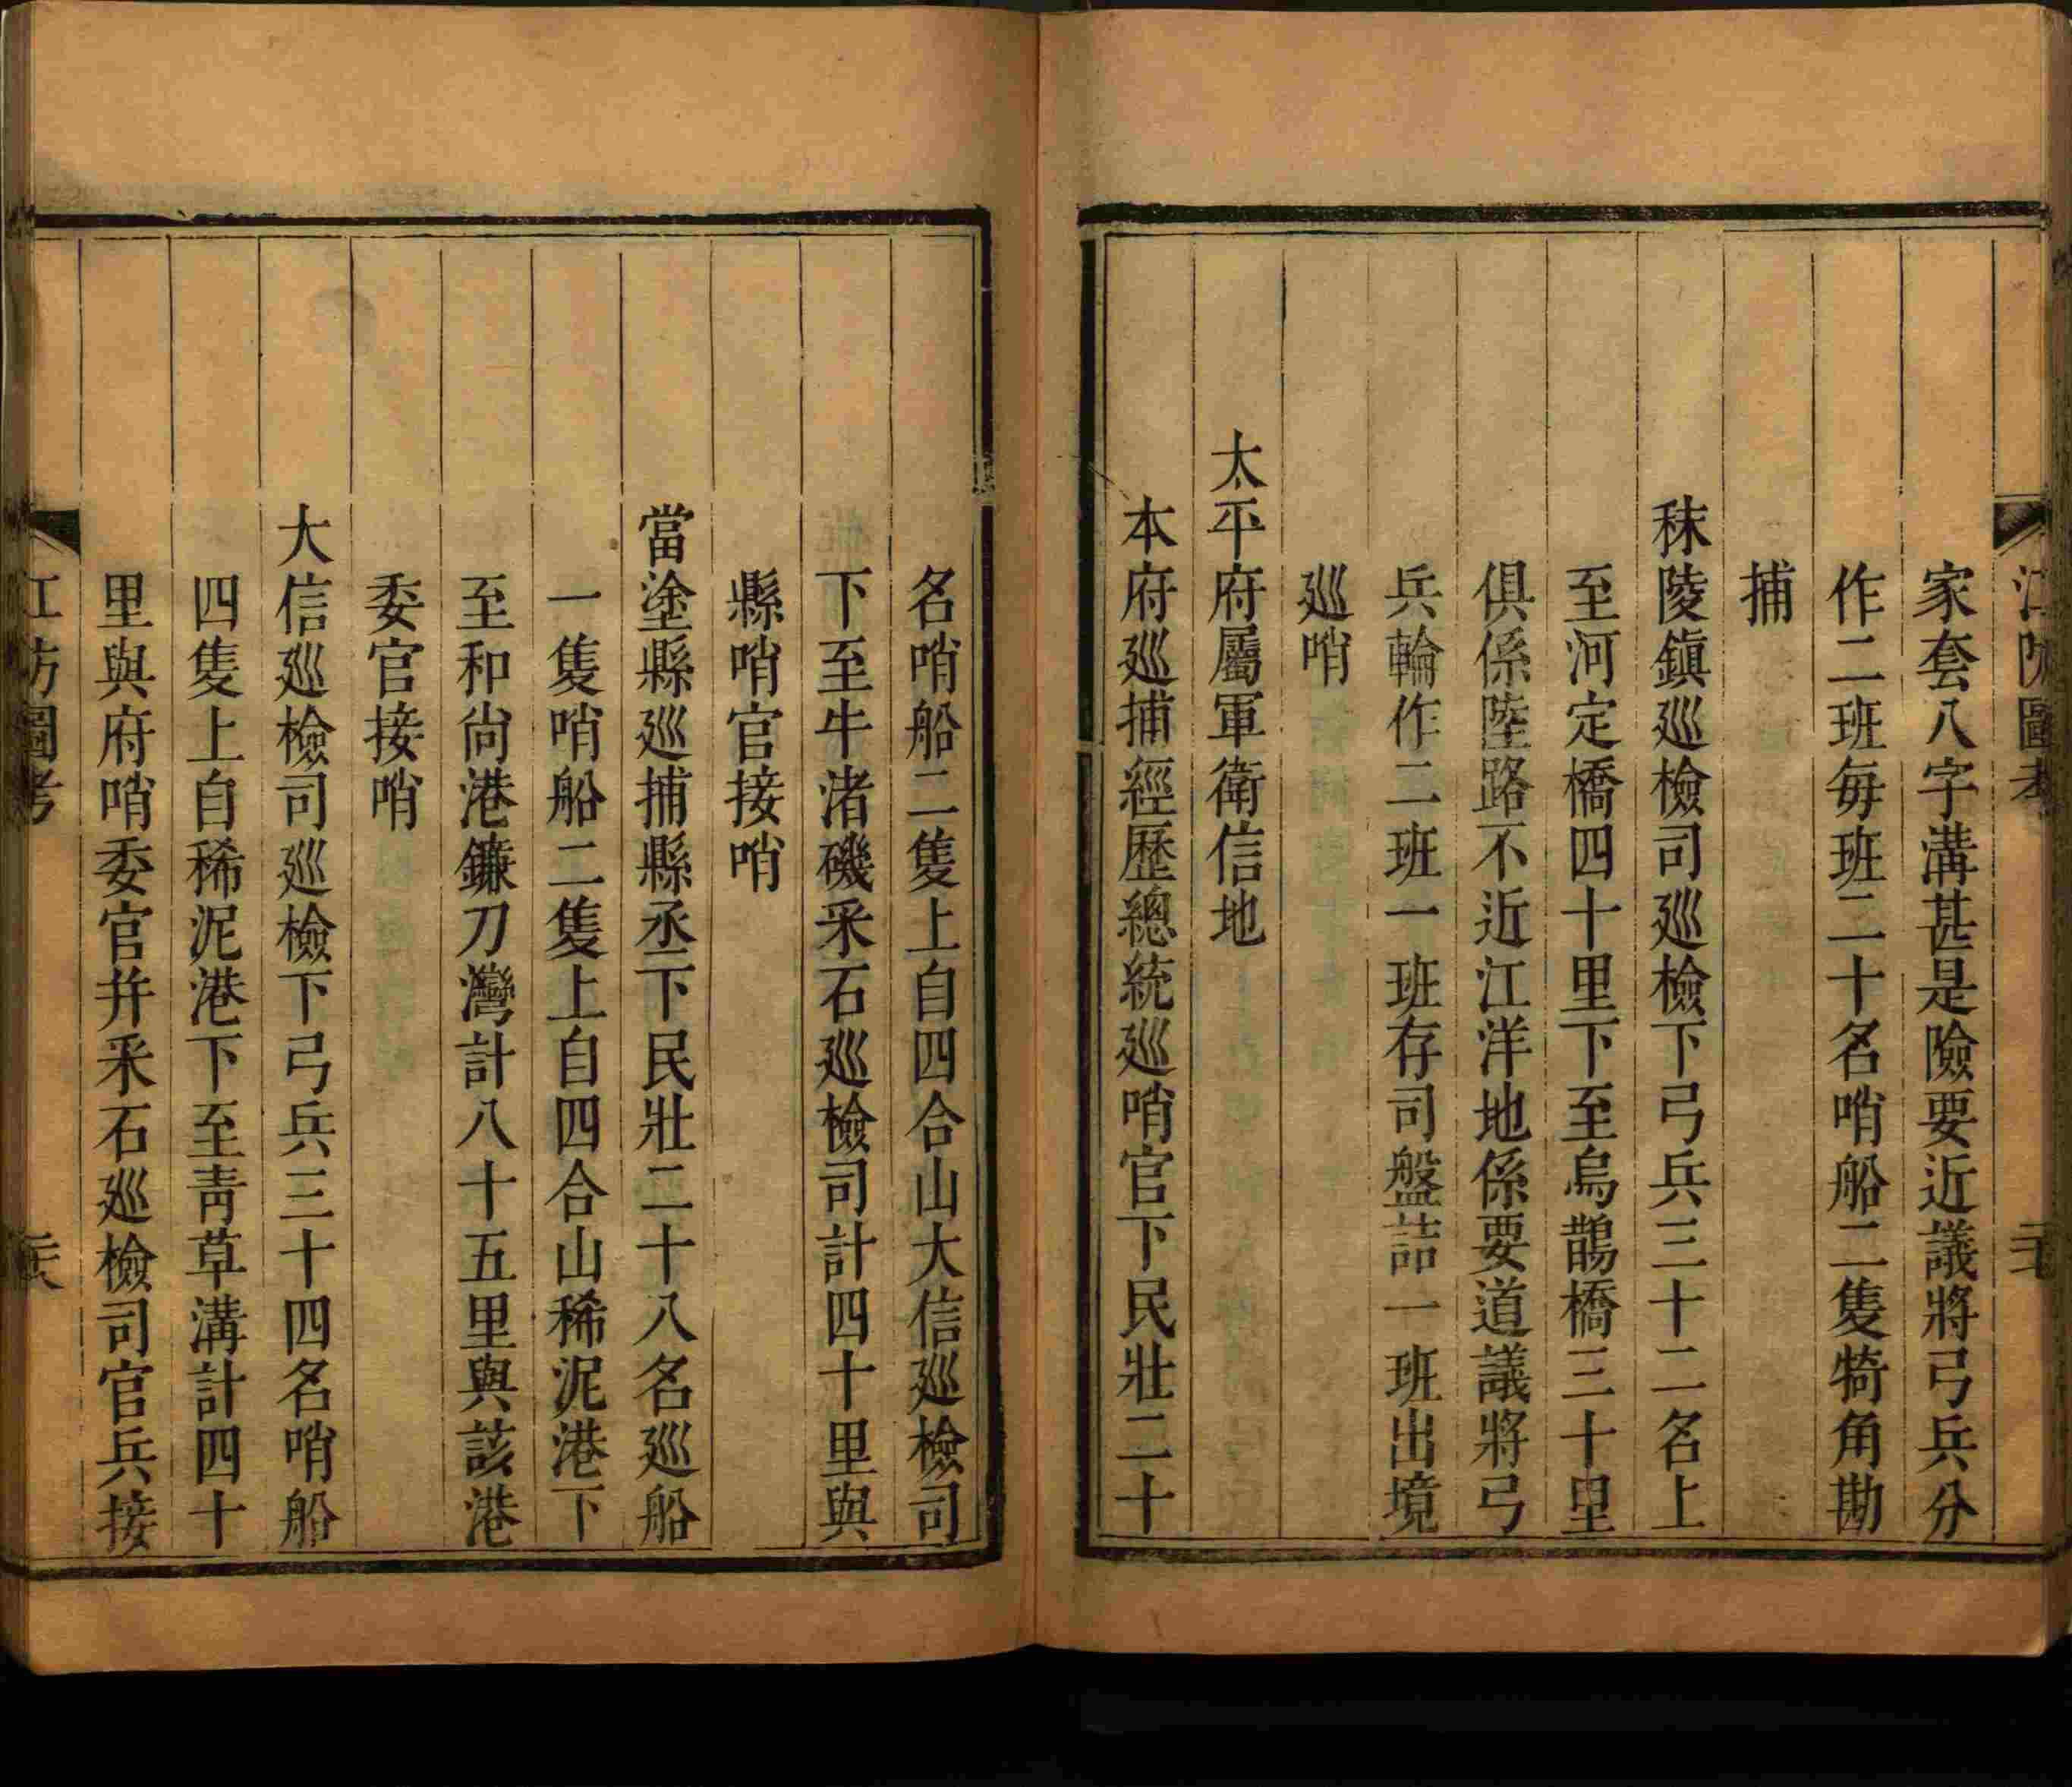 江防圖考
家套八字溝甚是險要近議將弓兵分
作二班每班二十名哨船二隻犄角勘
捕
秣陵鎮廵檢司廵檢下弓兵三十二名上
至河定橋四十里下至烏鵲橋三十里
俱係陸路不近江洋地係要道議將弓
兵輪作二班一班存司盤詰一班出境
廵哨
太平府屬軍衛信地
本府廵捕經歷總統廵哨官下民壯二十
名哨船二隻上自四合山大信廵檢司
下至牛渚磯采石廵檢司計四十里與
縣哨官接哨
當塗縣廵捕縣丞下民壯二十八名廵船
一隻哨船二隻上自四合山稀泥港下
至和尚港鐮刀灣計八十五里與該港
委官接哨
大信廵檢司廵檢下弓兵三十四名哨船
四隻上自稀泥港下至青草溝計四十
里與府哨委官并采石廵檢司官兵接
江防圖考